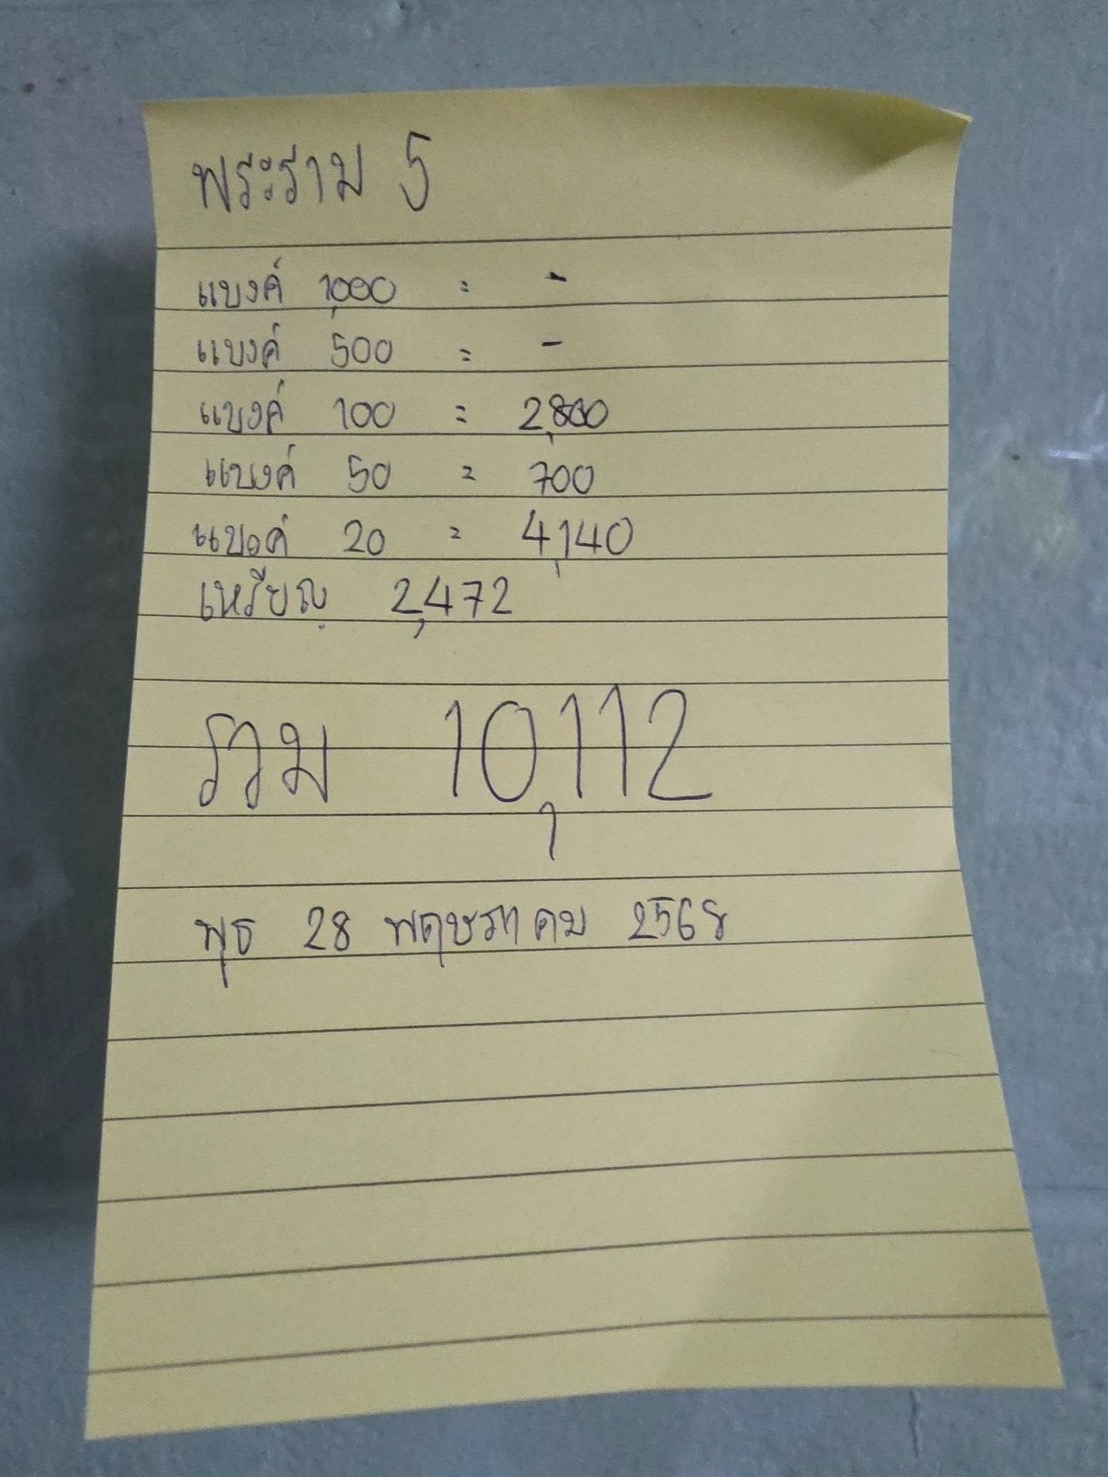 พระราม 5
แบงค์ 1,000 = -
แบงค์ 500 = -
แบงค์ 100 = 2,800
แบงค์ 50 = 700
แบงค์ 20 = 4,140
เหรียญ 2,472
รวม 10,112
พุธ 28 พฤษภาคม 2568